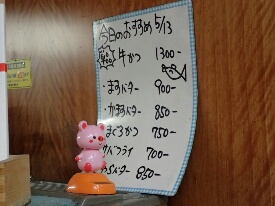 今日のおすすめ 5/13
牛かつ 1300-
・ますバター 900-
・かすバター 850-
・まぐろかつ 750-
・サバフライ 700-
バター 850-